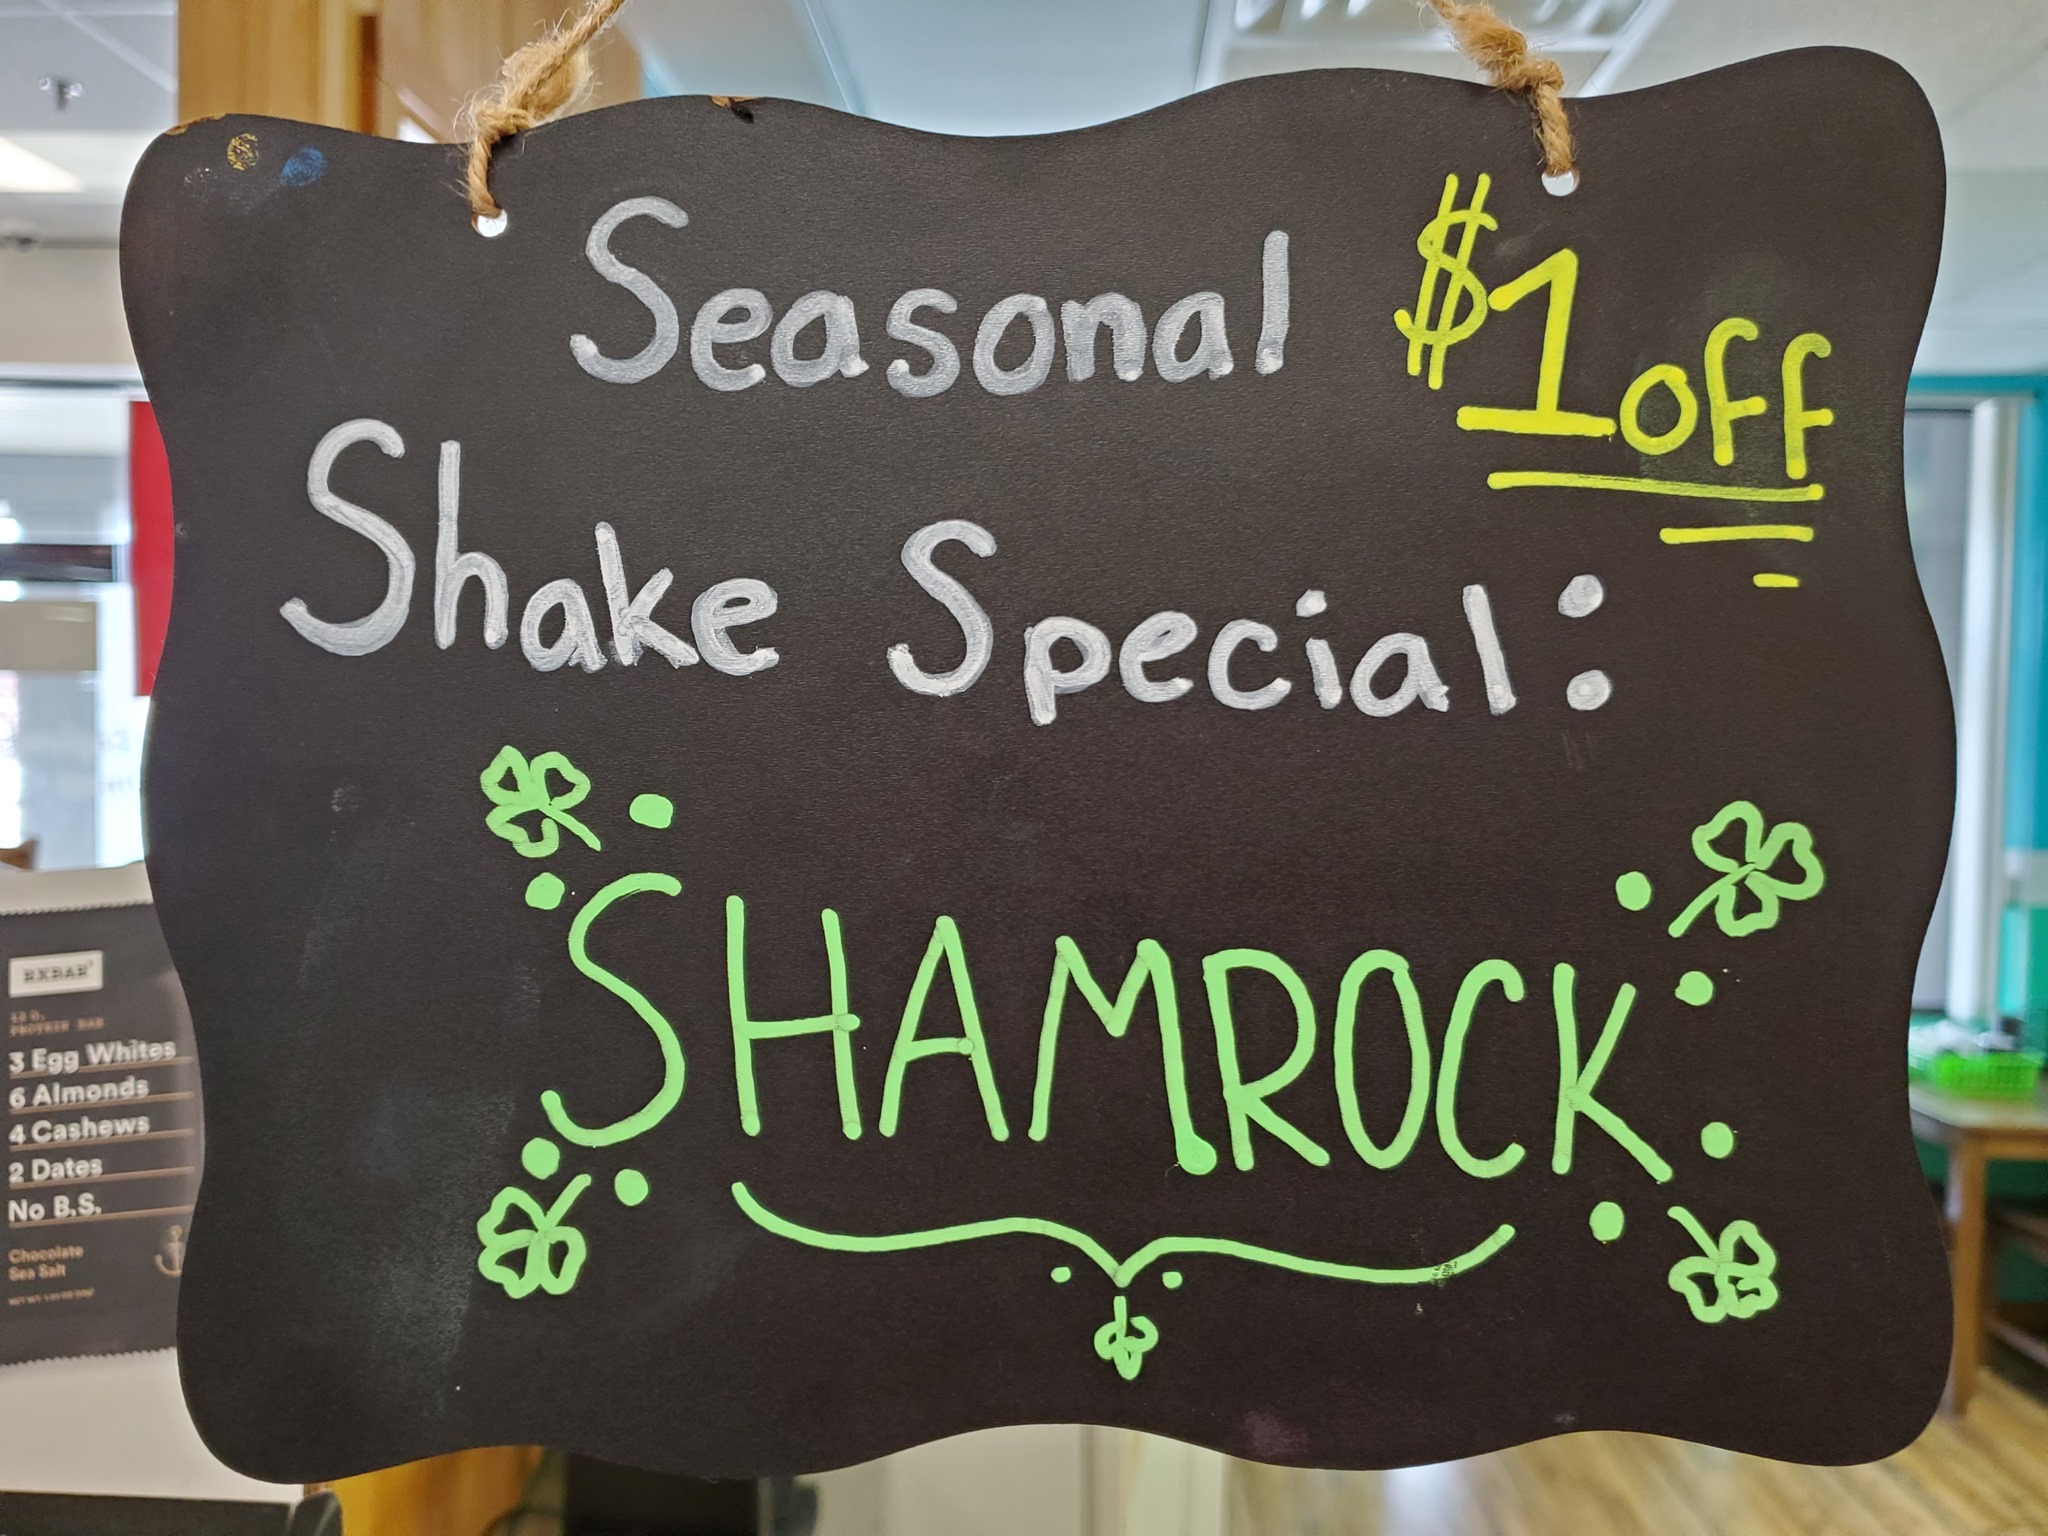 Seasonal
$1 off
Shake Special:
SHAMROCK
RXBAR
12 G.
PROTEIN BAR
3 Egg Whites
6 Almonds
4 Cashews
2 Dates
No B.S.
Chocolate
Sea Salt